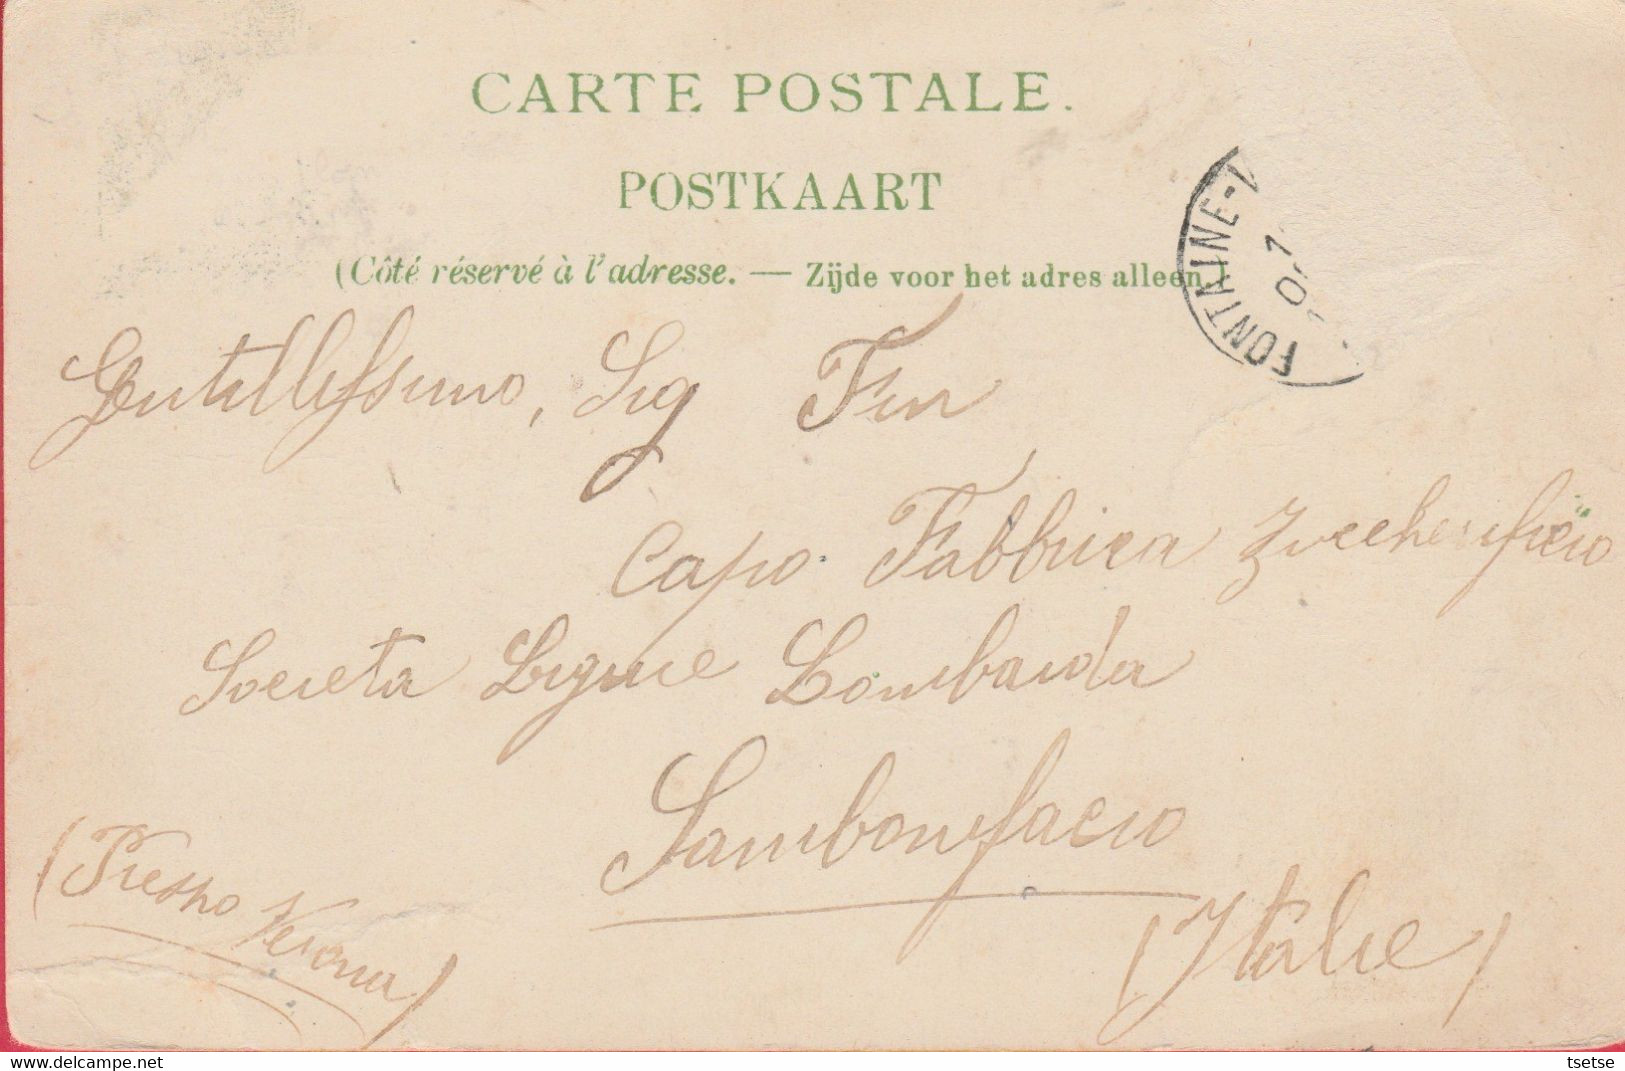 CARTE POSTALE.
POSTKAART
(Côté réservé à l'adresse. — Zijde voor het adres alleen.)
FONTAINE-
Gentillessimo, Sig
Capo Fabbrica Zuccherificio
Societa Ligure Lombarda
Sambonifacio
(Presso Verona)
(Italie)
www.delcampe.net
tsetse